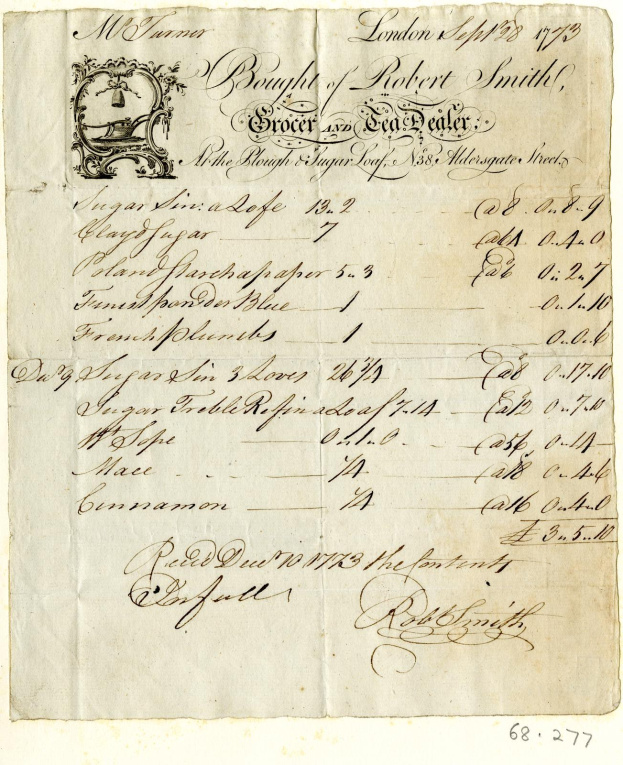 Mr Turner London Septr 28 1773
Bought of Robert Smith,
Grocer AND Tea Dealer,
At the Plough & Sugar Loaf, No. 38, Aldersgate Street.
Sugar Sin: a Lofe 13 " 2 @ 8 0 " 8 " 9
Clayd Sugar 7 0 " 4 " 0
Poland Starch a paper 5 " 3 @ 6 0 " 2 " 7
Finest powder Blue 1 0 " 1 " 10
French plumbs 1 0 " 0 " 6
Decr 9 Sugar Sin 3 Loves 26 3/4 @ 8 0 " 17 " 10
Sugar Treble Refin a Loaf 7 " 14 @ 12 0 " 7 " 10
Sope 0 " 1 " 0 @ 56 0 " 14
Mace 1/4 @ 18 0 " 4 " 6
Cinnamon 1/4 @ 16 0 " 4 " 0
£ 3 " 5 " 10
Recd Decr 10 1773 the Contents
In full
Robt Smith
68.277